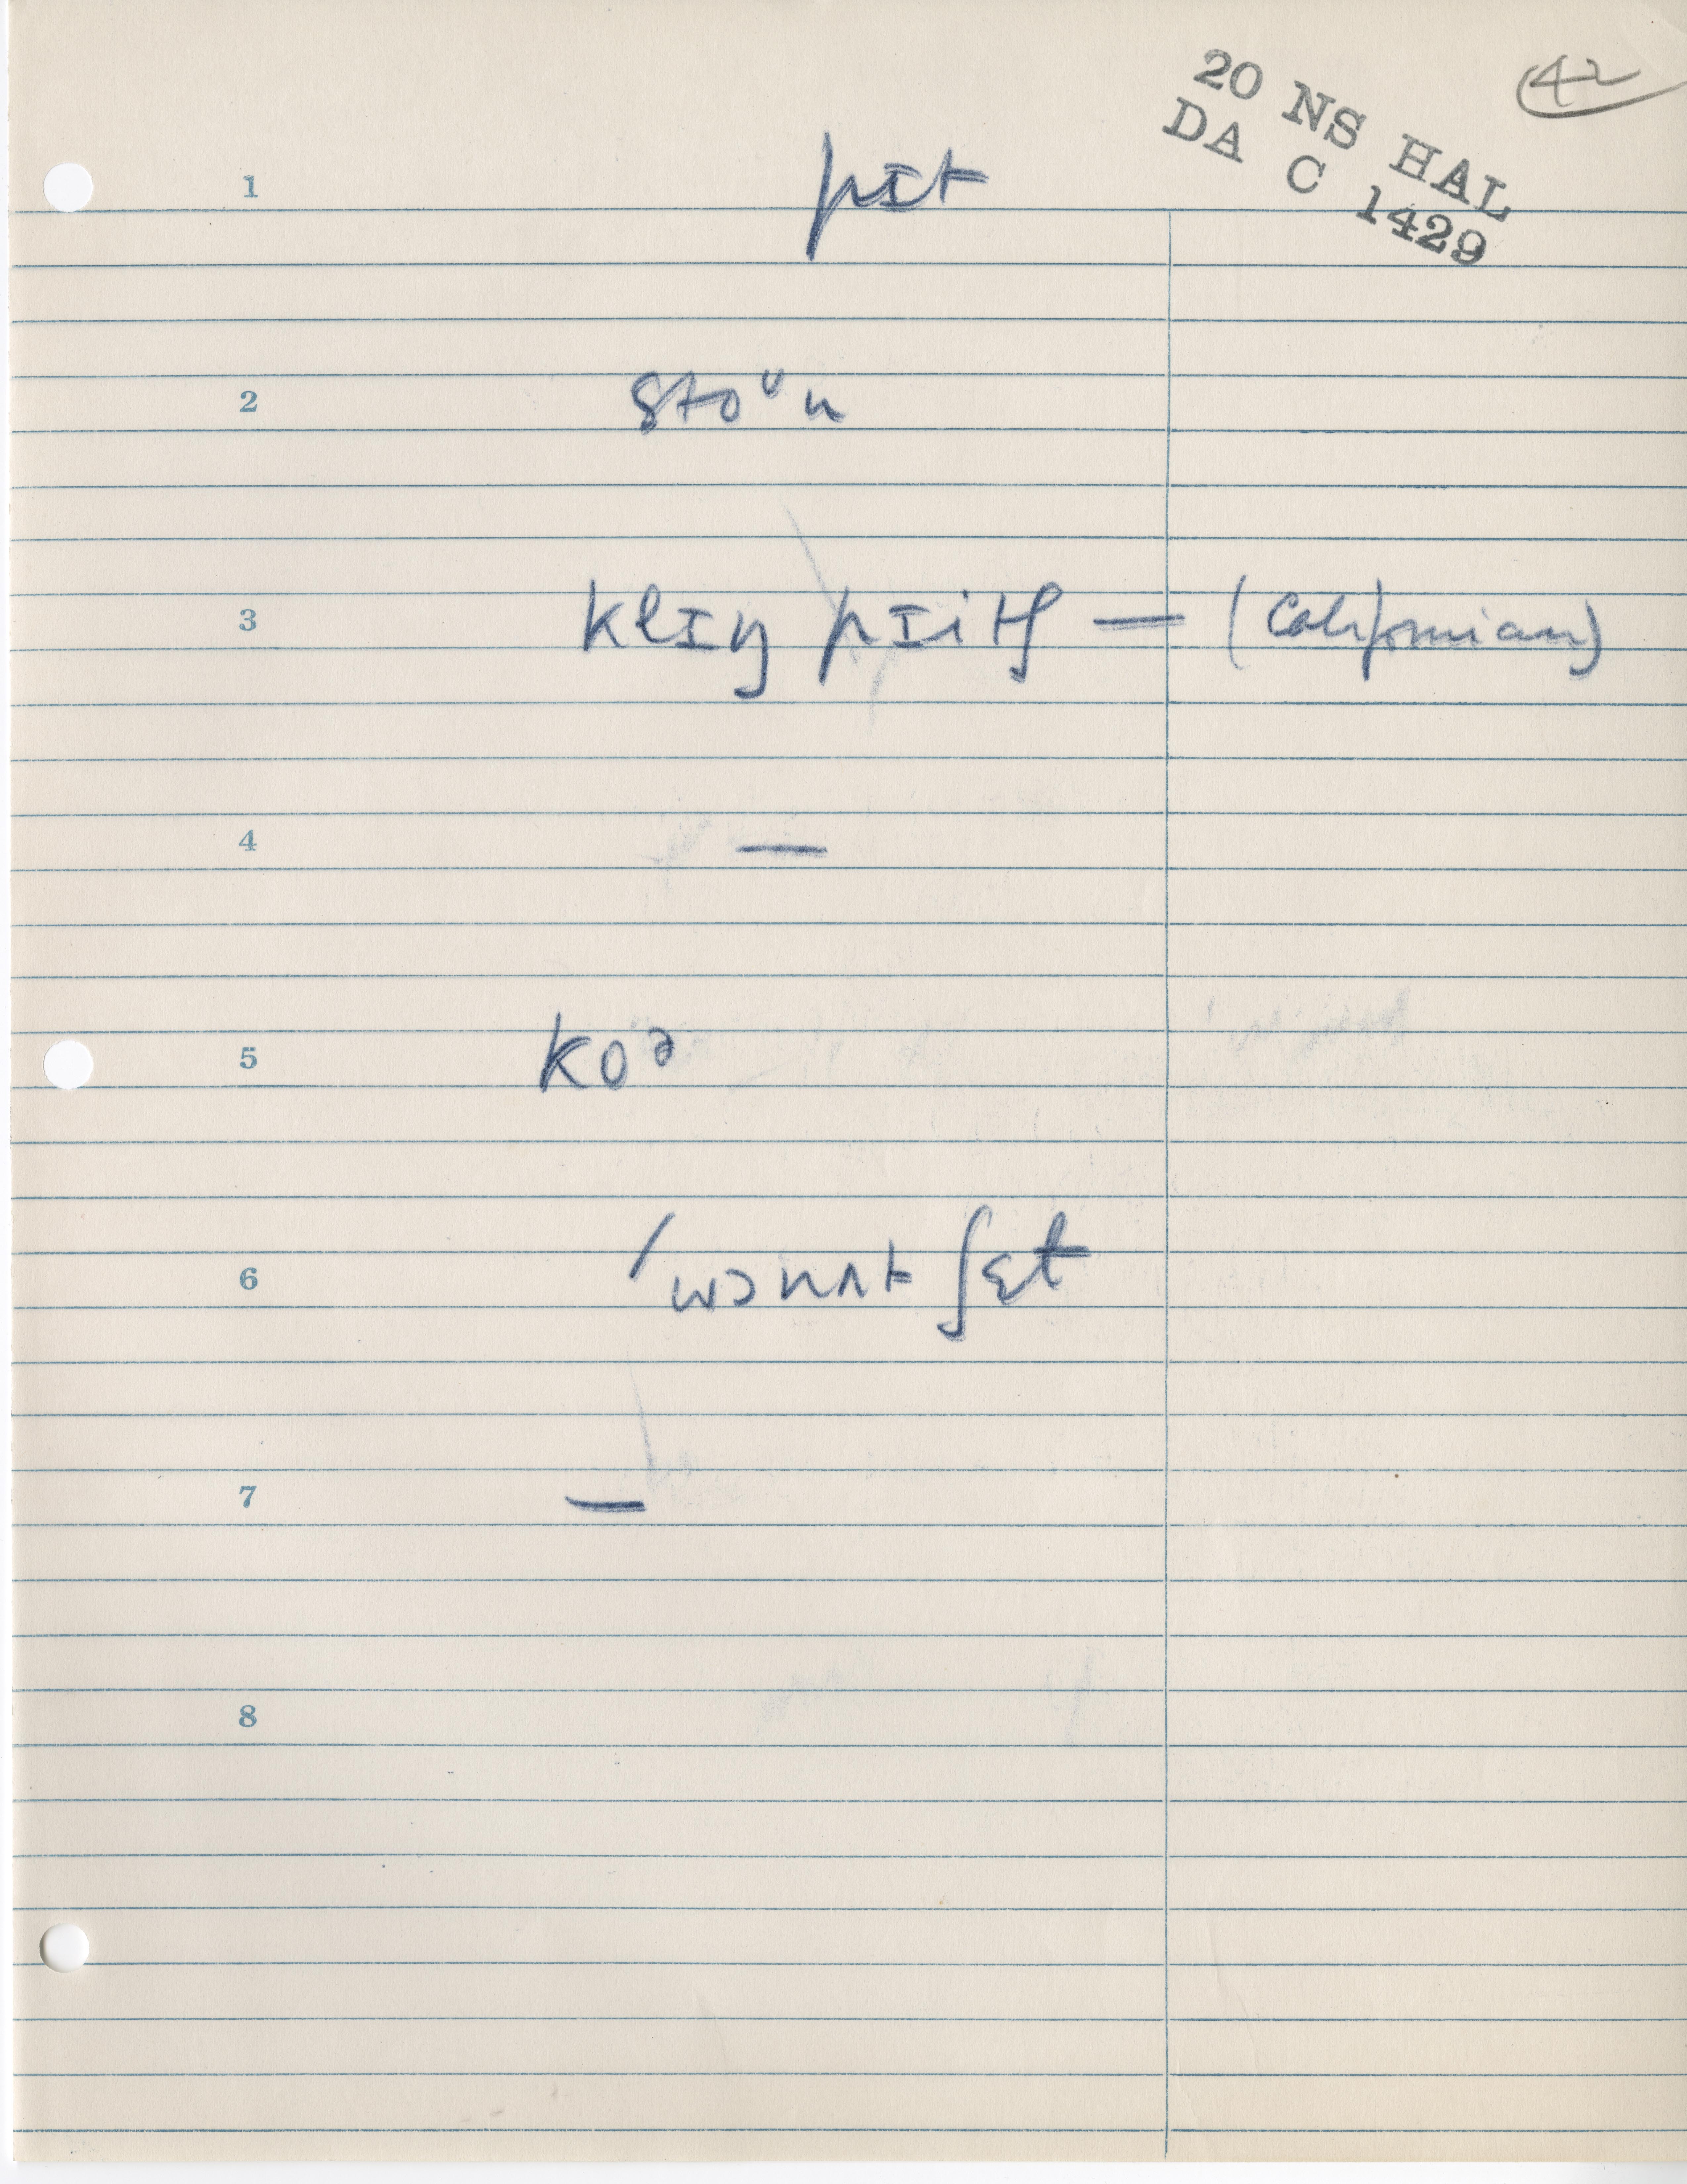 42
20 NS HAL
DA C 1429
1 pɪt
2 stoᶷn
3 klɪŋ pɪitʃ — (Californian)
4 —
5 koᵊ
6 ˈwɔnʌt ʃɛt
7 —
8